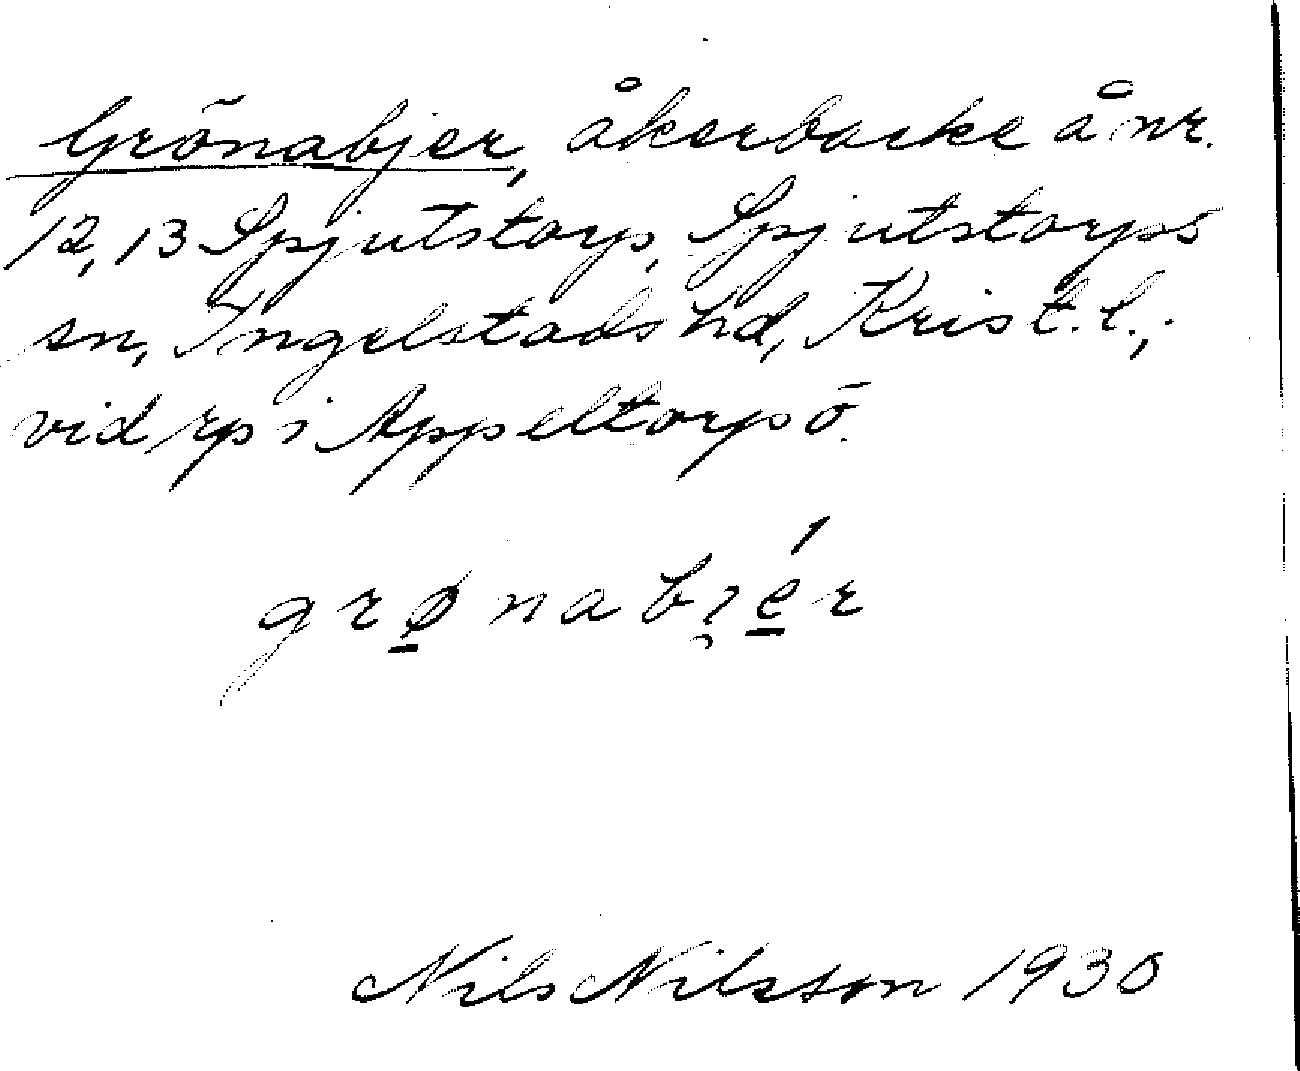 Grönabjer, åkerbacke å nr.
12, 13 Spjutstorp, Spjutstorps
sn, Ingelstads hd, Krist. l.,
vid rp i Appeltorps ö.
grø̱nabi̯é̱r
Nils Nilsson 1930